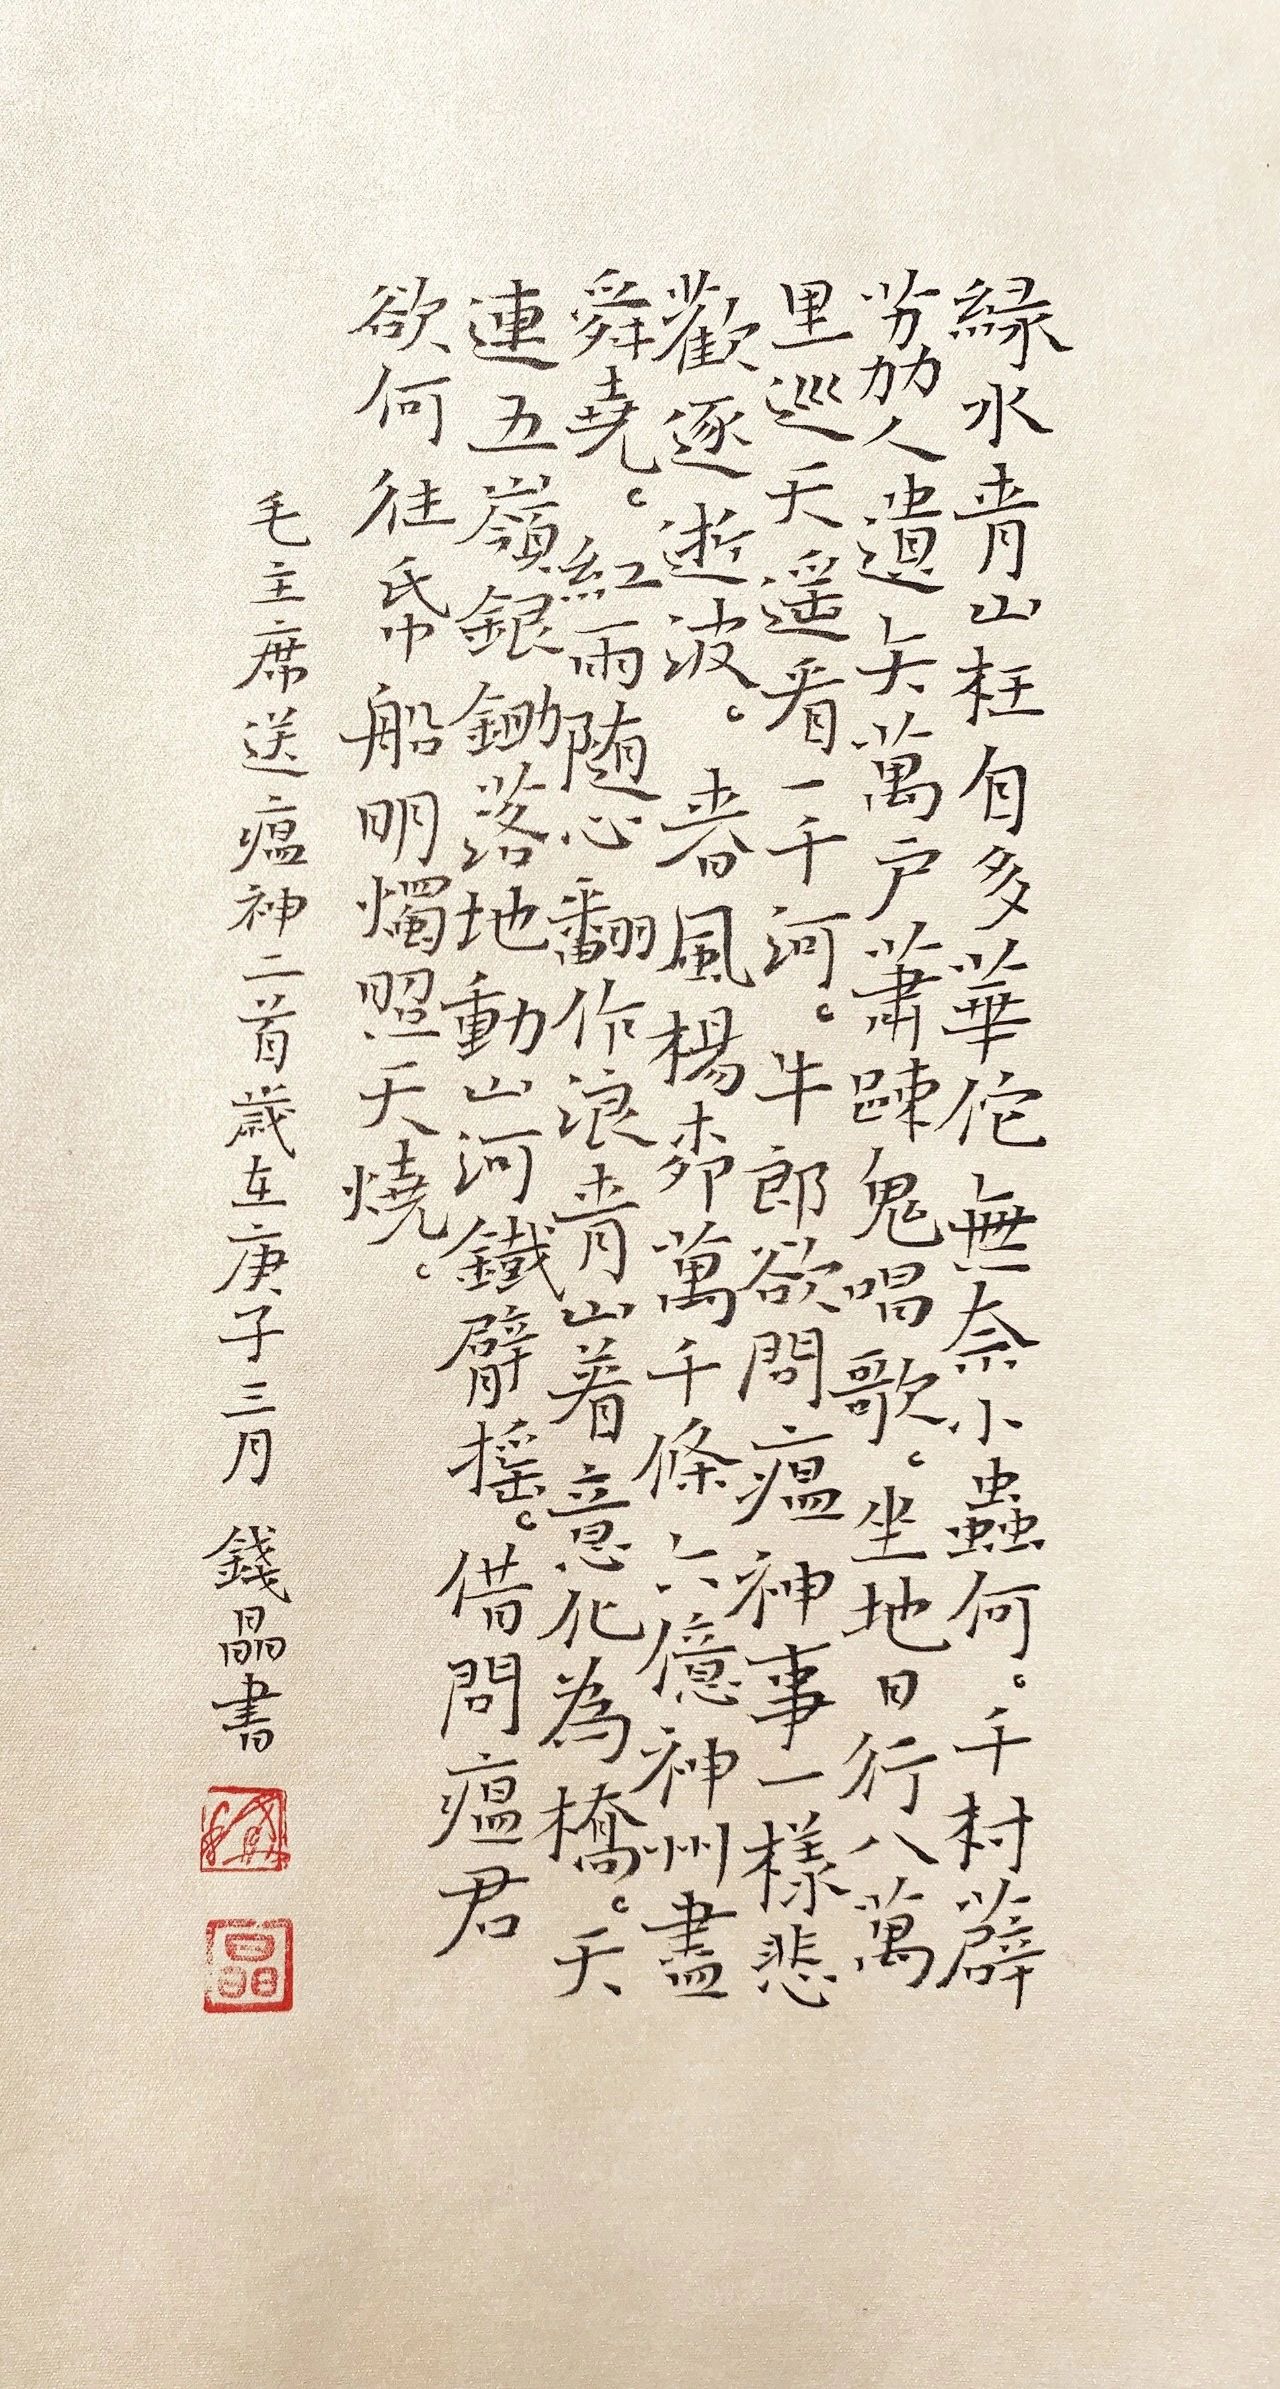 緑水青山枉自多華佗無奈小蟲何。千村薜
茘人遺矢萬户蕭踈鬼唱歌。坐地日行八萬
里巡天遥看一千河。牛郎欲問瘟神事一樣悲
歡逐逝波。春風楊栁萬千條六億神州盡
舜堯。紅雨随心翻作浪青山着意化為橋。天
連五嶺銀鋤落地動山河鐵臂摇。借問瘟君
欲何往帋船明燭照天燒。
毛主席送瘟神二首歲在庚子三月 錢晶書
晶